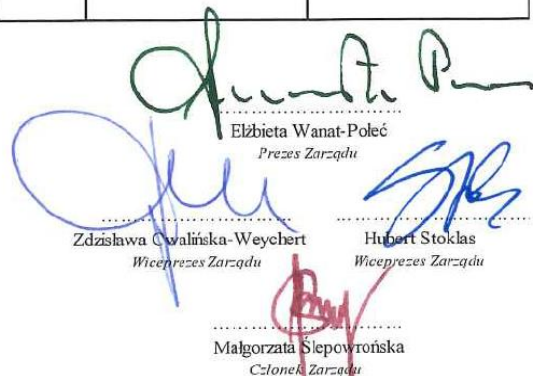 Elżbieta Wanat-Połeć
Prezes Zarządu
Zdzisława Cwalińska-Weychert
Wiceprezes Zarządu
Hubert Stoklas
Wiceprezes Zarządu
Małgorzata Ślepowrońska
Członek Zarządu